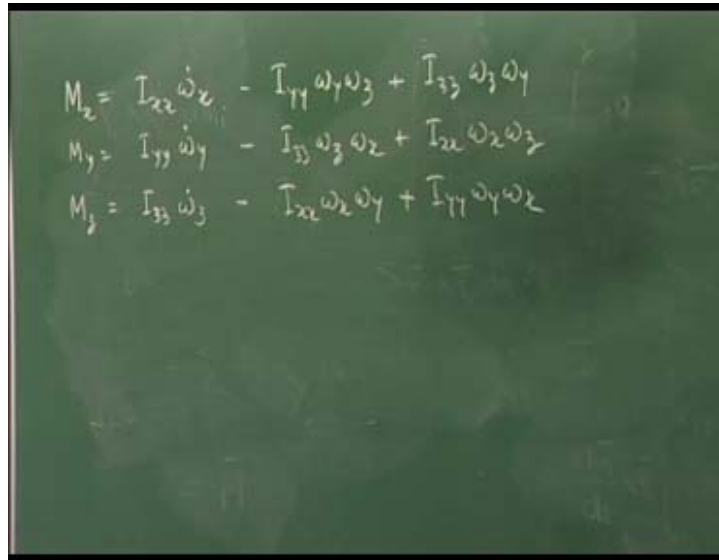 Mₓ = Iₓₓ ω̇ₓ - I_yy ω_y ω_z + I_zz ω_z ω_y
M_y = I_yy ω̇_y - I_zz ω_z ωₓ + Iₓₓ ωₓ ω_z
M_z = I_zz ω̇_z - Iₓₓ ωₓ ω_y + I_yy ω_y ωₓ